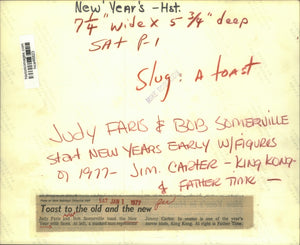 New Year's - Hst.
7 1/4" wide x 5 3/4" deep
SAT P-1
Slug: A toast
Judy FARIS & BOB SOMERVILLE
start NEW YEARS EARLY W/FIGURES
of 1977 - JIM. CARTER - KING KONG -
& FATHER TIME -
SAT JAN 1 1977
Toast to the old and the new
Judy Faris and Bob Somerville toast the New
Year with
Jimmy Carter. In center is one of the year's
movie idols, King Kong. At right is Father Time.